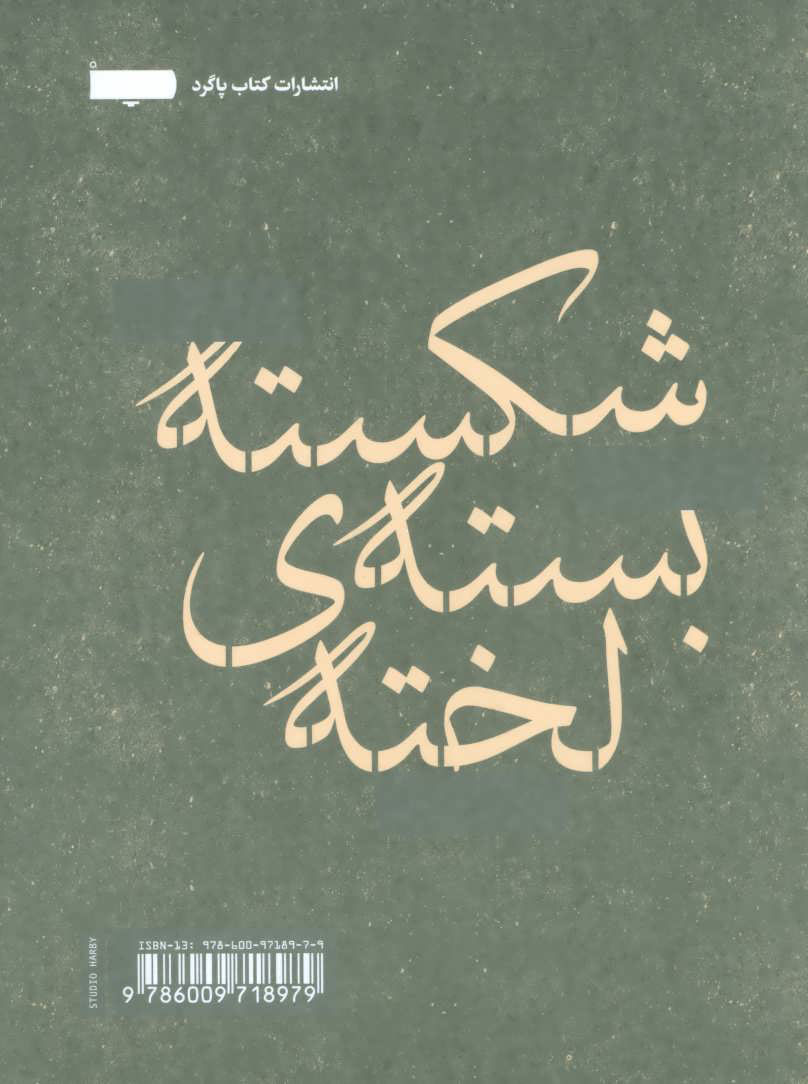 انتشارات کتاب پاگرد
شکسته
بسته‌ی
لخته
STUDIO HARBY
ISBN-13: 978-600-97189-7-9
9 786009 718979